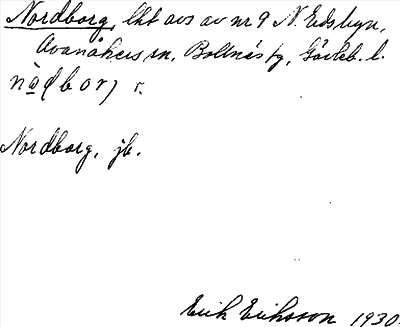 Nordborg, lht avs av nr 9 N. Edsbyn,
Ovanåkers sn, Bollnäs tg, Gävleb. l.
Nordborg, jb.
Erik Eriksson 1930.